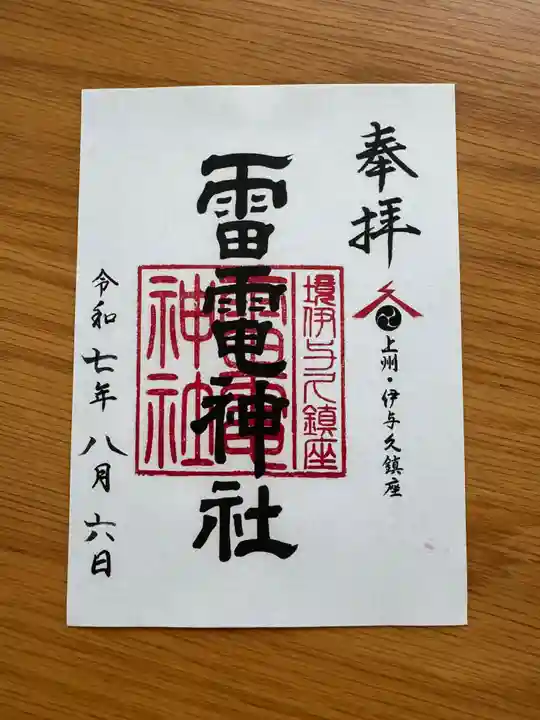 奉拝
上州・伊与久鎮座
雷電神社
境伊与久鎮座
雷電
神社
令和七年八月六日